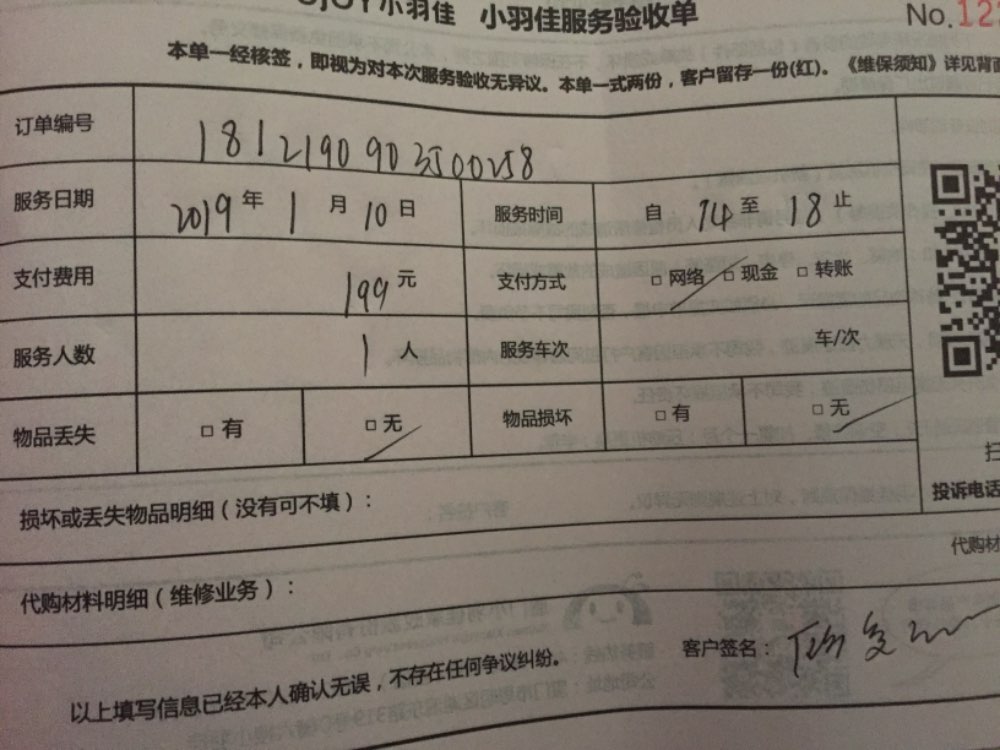 小羽佳 小羽佳服务验收单 No.12
本单一经接签，即视为对本次服务验收无异议。本单一式两份，客户留存一份(红)。《维保须知》详见背面
订单编号 1812190903500258
服务日期 2019年 1月 10日 服务时间 自 14 至 18 止
支付费用 199元 支付方式 □ 网络 □ 现金 □ 转账
服务人数 1 人 服务车次 车/次
物品丢失 □ 有 □ 无 物品损坏 □ 有 □ 无
扫
投诉电话
损坏或丢失物品明细（没有可不填）：
代购材
代购材料明细（维修业务）：
客户签名：
以上填写信息已经本人确认无误，不存在任何争议纠纷。